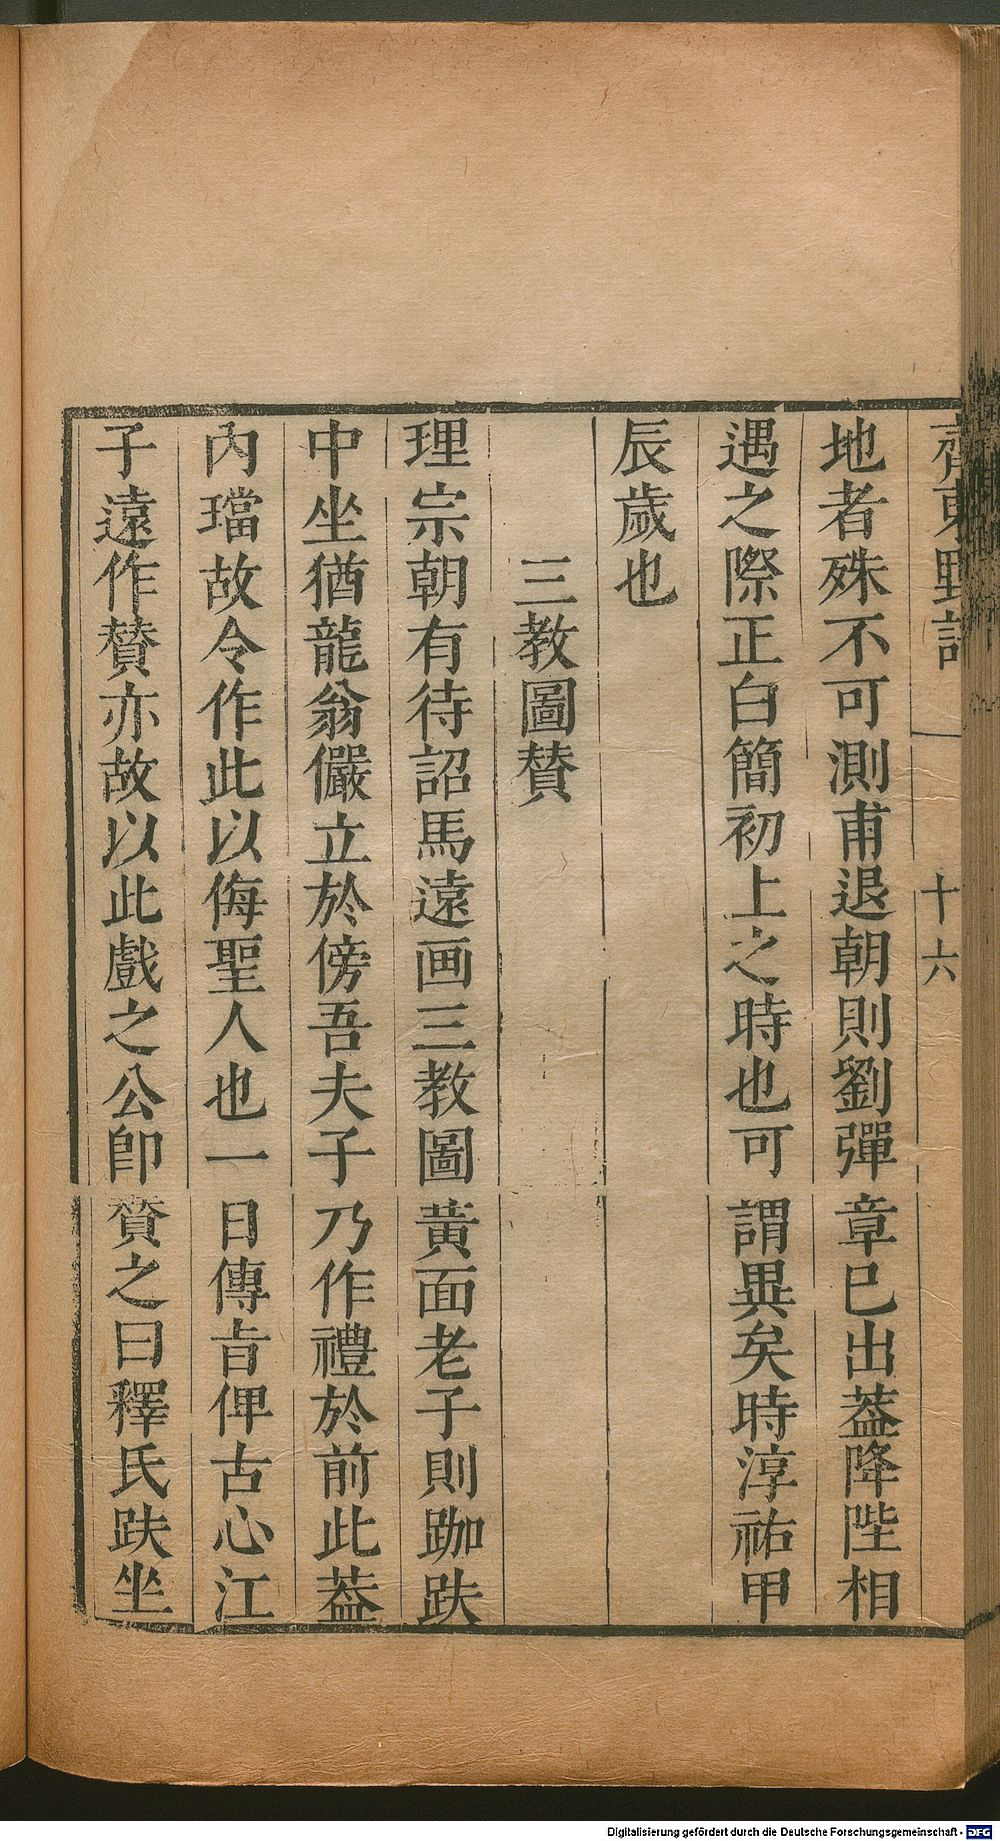 齊東野語 十六
地者殊不可測甫退朝則劉彈章已出葢降陛相
遇之際正白簡初上之時也可謂異矣時淳祐甲
辰歲也
三教圖贊
理宗朝有待詔馬遠画三教圖黄面老子則跏趺
中坐猶龍翁儼立於傍吾夫子乃作禮於前此葢
內璫故令作此以侮聖人也一日傳㫖俾古心江
子遠作贊亦故以此戲之公卽賛之曰釋氏趺坐
Digitalisierung gefördert durch die Deutsche Forschungsgemeinschaft - DFG